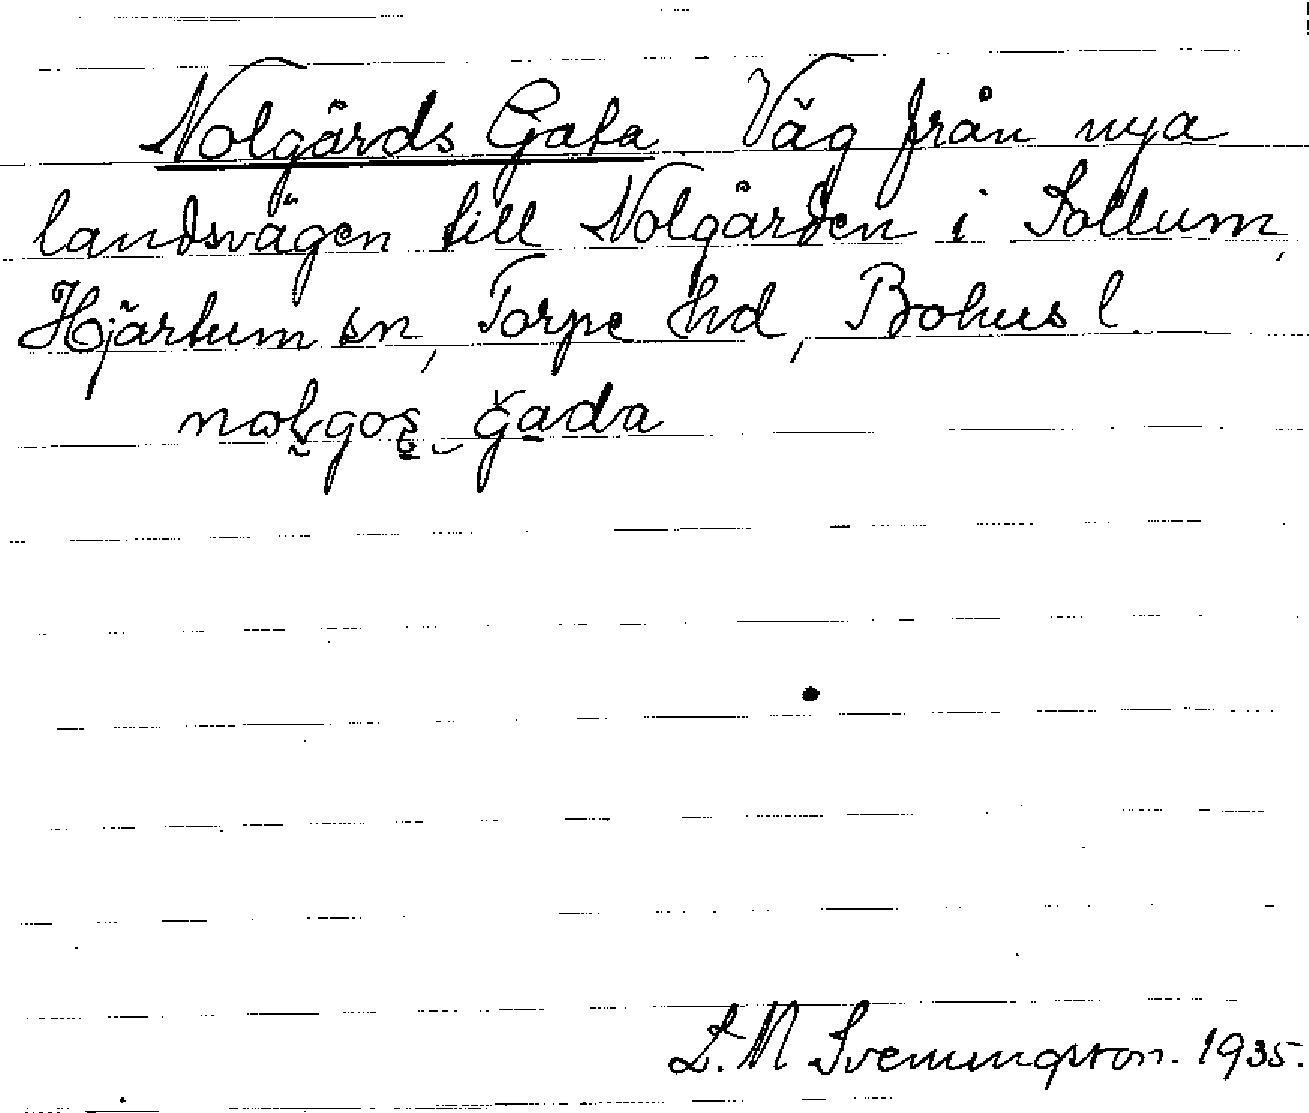 Nolgårds Gata. Väg från nya
landsvägen till Nolgården i Sollum,
Hjärtum sn, Torpe hd, Bohus l.
D. M Svenningson. 1935.